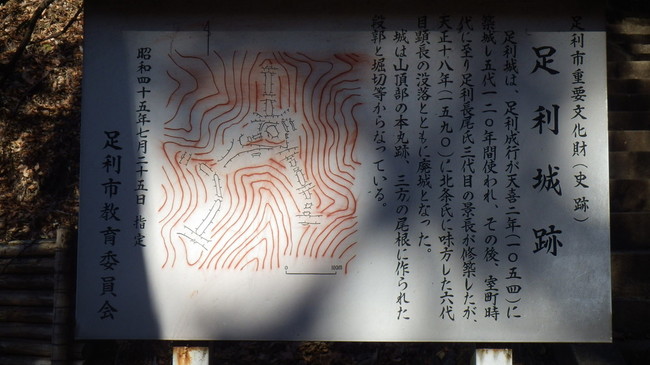 足利市重要文化財(史跡)
足利城跡
足利城は、足利成行が天喜二年(一〇五四)に
築城し五代一二〇年間使われ、その後、室町時
代に至り足利長尾氏三代目の景長が修築したが、
天正十八年(一五九〇)に北条氏に味方した六代
目顕長の没落とともに廃城となった。
城は山頂部の本丸跡、三方の尾根に作られた
段郭と堀切等からなっている。
0
昭和四十五年七月二十五日 指定
足利市教育委員会